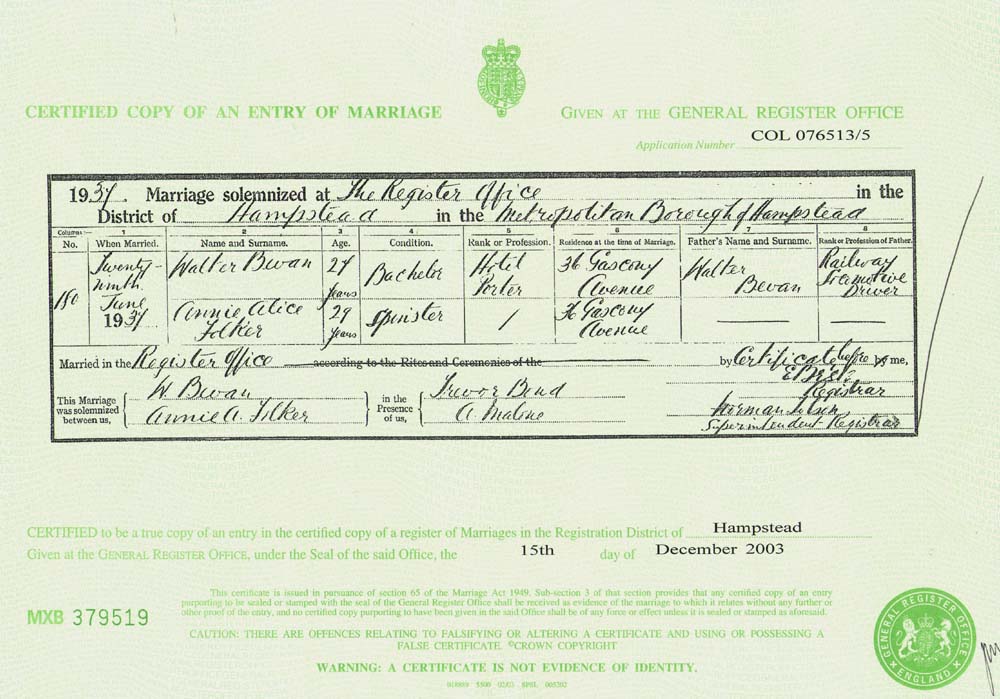 CERTIFIED COPY OF AN ENTRY OF MARRIAGE
GIVEN AT THE GENERAL REGISTER OFFICE
Application Number COL 076513/5
1937. Marriage solemnized at The Register Office in the
District of Hampstead in the Metropolitan Borough of Hampstead
Columns:— 1 2 3 4 5 6 7 8
No. When Married. Name and Surname. Age. Condition. Rank or Profession. Residence at the time of Marriage. Father's Name and Surname. Rank or Profession of Father.
180 Twenty-ninth June 1937 Walter Bevan 27 years Bachelor Hotel Porter 36 Gascony Avenue Walter Bevan Railway Locomotive Driver
Annie Alice Folker 29 years Spinster / 36 Gascony Avenue
Married in the Register Office according to the Rites and Ceremonies of the by Certificate before by me,
This Marriage was solemnized between us,
W. Bevan
Annie A. Folker
in the Presence of us,
Trevor Bond
A. Malone
Registrar
Superintendent Registrar
CERTIFIED to be a true copy of an entry in the certified copy of a register of Marriages in the Registration District of Hampstead
Given at the GENERAL REGISTER OFFICE, under the Seal of the said Office, the 15th day of December 2003
This certificate is issued in pursuance of section 65 of the Marriage Act 1949. Sub-section 3 of that section provides that any certified copy of an entry
purporting to be sealed or stamped with the seal of the General Register Office shall be received as evidence of the marriage to which it relates without any further or
other proof of the entry, and no certified copy purporting to have been given in the said Office shall be of any force or effect unless it is sealed or stamped as aforesaid.
MXB 379519
CAUTION: THERE ARE OFFENCES RELATING TO FALSIFYING OR ALTERING A CERTIFICATE AND USING OR POSSESSING A
FALSE CERTIFICATE. ©CROWN COPYRIGHT
WARNING: A CERTIFICATE IS NOT EVIDENCE OF IDENTITY.
GENERAL REGISTER OFFICE
ENGLAND